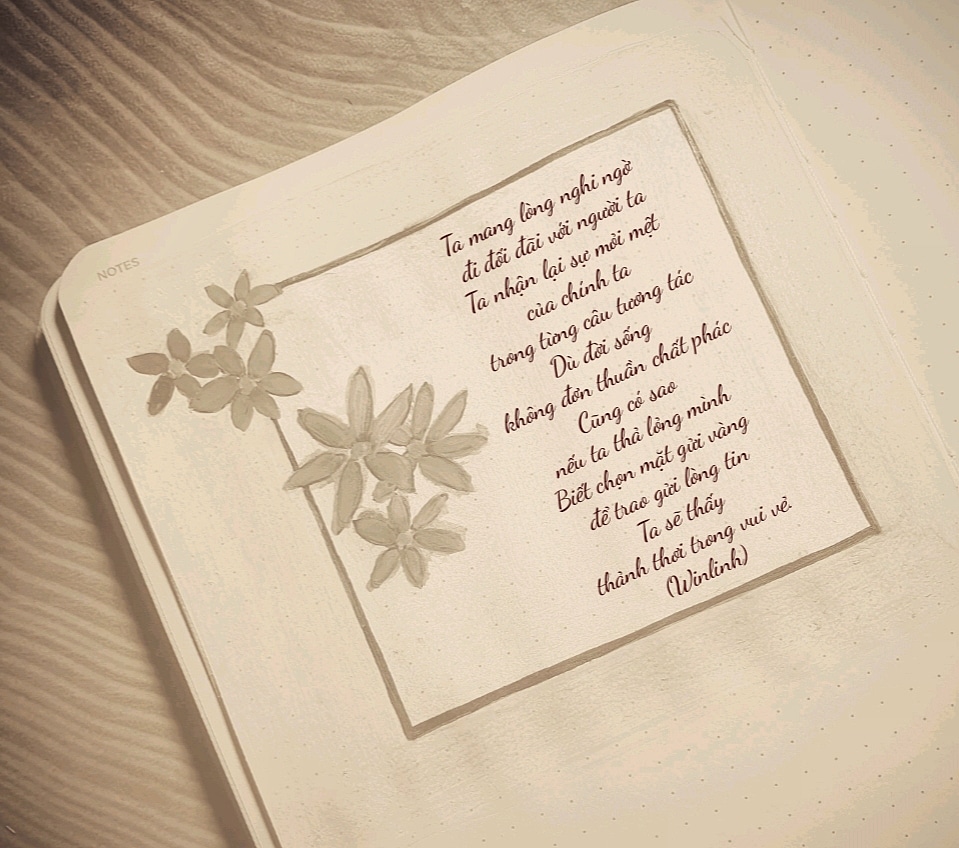 NOTES
Ta mang lòng nghi ngờ
đi đối đãi với người ta
Ta nhận lại sự mỏi mệt
của chính ta
trong từng câu tương tác
Dù đời sống
không đơn thuần chất phác
Cũng có sao
nếu ta thả lòng mình
Biết chọn mặt gửi vàng
để trao gửi lòng tin
Ta sẽ thấy
thành thơi trong vui vẻ.
(Winlinh)